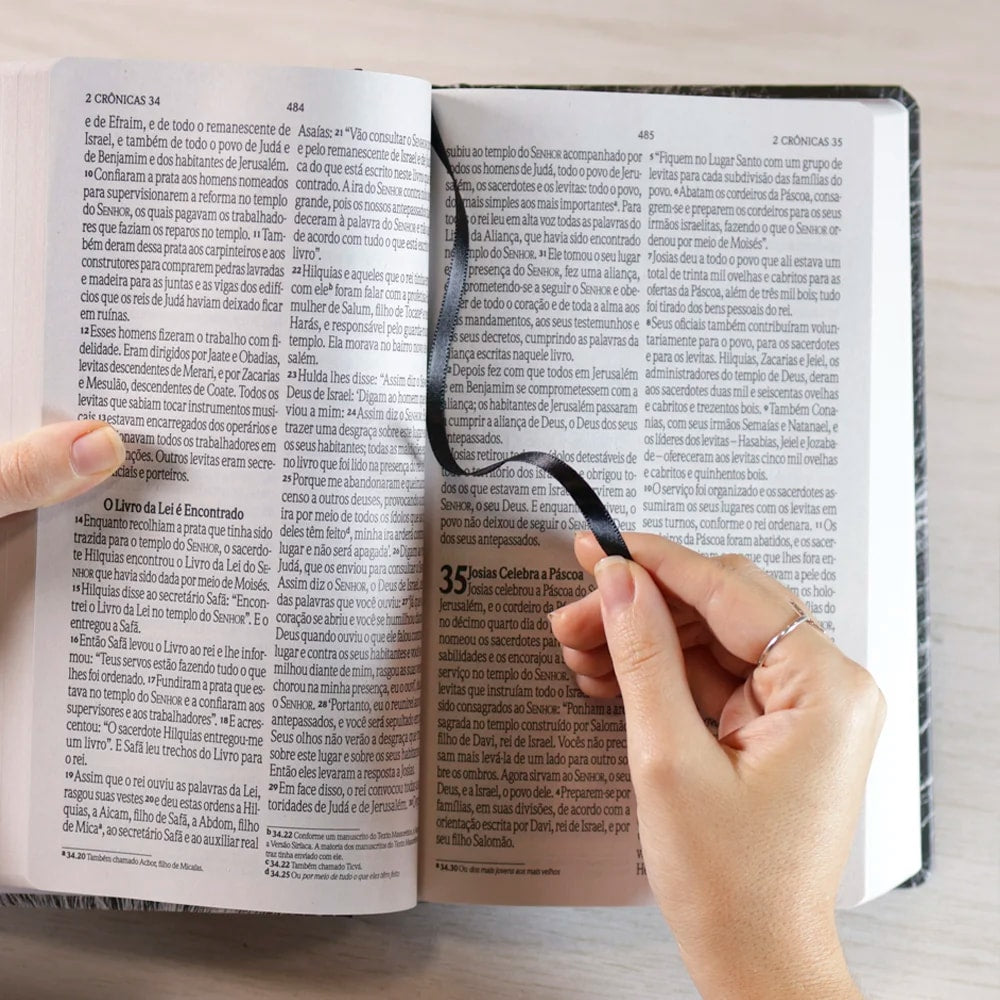 2 CRÔNICAS 34
484
e de Efraim, e de todo o remanescente de
Israel, e também de todo o povo de Judá e
de Benjamim e dos habitantes de Jerusalém.
10 Confiaram a prata aos homens nomeados
para supervisionarem a reforma no templo
do SENHOR, os quais pagavam os trabalhado-
res que faziam os reparos no templo. 11 Tam-
bém deram dessa prata aos carpinteiros e aos
construtores para comprarem pedras lavradas
e madeira para as juntas e as vigas dos edifí-
cios que os reis de Judá haviam deixado ficar
em ruínas.
12 Esses homens fizeram o trabalho com fi-
delidade. Eram dirigidos por Jaate e Obadias,
levitas descendentes de Merari, e por Zacarias
e Mesulão, descendentes de Coate. Todos os
levitas que sabiam tocar instrumentos musi-
cais 13 estavam encarregados dos operários e
todos os trabalhadores em
Outros levitas eram secre-
e porteiros.
O Livro da Lei é Encontrado
14 Enquanto recolhiam a prata que tinha sido
trazida para o templo do SENHOR, o sacerdo-
te Hilquias encontrou o Livro da Lei do Se-
NHOR que havia sido dada por meio de Moisés.
15 Hilquias disse ao secretário Safã: "Encon-
trei o Livro da Lei no templo do SENHOR". E o
entregou a Safã.
16 Então Safã levou o Livro ao rei e lhe infor-
mou: "Teus servos estão fazendo tudo o que
lhes foi ordenado. 17 Fundiram a prata que es-
tava no templo do SENHOR e a confiaram aos
supervisores e aos trabalhadores". 18 E acres-
centou: "O sacerdote Hilquias entregou-me
um livro". E Safã leu trechos do Livro para
o rei.
19 Assim que o rei ouviu as palavras da Lei,
rasgou suas vestes 20 e deu estas ordens a Hil-
quias, a Aicam, filho de Safã, a Abdom, filho
de Micaª, ao secretário Safã e ao auxiliar real
a 34.20 Também chamado Acbor, filho de Micaías.
Asaías: 21 "Vão consultar o
e pelo remanescente de Israel e de
ca do que está escrito neste livro
contrado. A ira do SENHOR contra
grande, pois os nossos antepassados
deceram à palavra do SENHOR e
de acordo com tudo o que está
livro".
22 Hilquias e aqueles que o rei
com eleᵇ foram falar com a
mulher de Salum, filho de
Harás, e responsável pelo
templo. Ela morava no bairro
salém.
23 Hulda lhes disse: "Assim diz o
Deus de Israel: 'Digam ao homem
viou a mim: 24 Assim diz o SENHOR
trazer uma desgraça sobre este
os seus habitantes; todas as
no livro que foi lido na presença do
25 Porque me abandonaram e
censo a outros deuses, provocando
ira por meio de todos os ídolos que
deles têm feitoᵈ, minha ira arderá
lugar e não será apagada'. 26 Digam
Judá, que os enviou para consultar
Assim diz o SENHOR, o Deus de Israel,
das palavras que você ouviu: 27 'Já que
coração se abriu e você se humilhou
Deus quando ouviu o que ele falou
lugar e contra os seus habitantes e você
milhou diante de mim, rasgou as
chorou na minha presença, eu o ouvi',
o SENHOR. 28 'Portanto, eu o reunirei
antepassados, e você será sepultado
Seus olhos não verão a desgraça que
sobre este lugar e sobre os seus
Então eles levaram a resposta a Josias.
29 Em face disso, o rei convocou todas
toridades de Judá e de Jerusalém.
b 34.22 Conforme um manuscrito do Texto
a Versão Siríaca. A maioria dos manuscritos do Texto
traz tinha enviado com ele.
c 34.22 Também chamado Ticvá.
d 34.25 Ou por meio de tudo o que eles têm feito
485
2 CRÔNICAS 35
subiu ao templo do SENHOR acompanhado por
todos os homens de Judá, todo o povo de Jeru-
salém, os sacerdotes e os levitas: todo o povo,
dos mais simples aos mais importantesª. Para
o rei leu em alta voz todas as palavras do
da Aliança, que havia sido encontrado
templo do SENHOR. 31 Ele tomou o seu lugar
presença do SENHOR, fez uma aliança,
prometendo-se a seguir o SENHOR e obe-
de todo o coração e de toda a alma aos
mandamentos, aos seus testemunhos e
seus decretos, cumprindo as palavras da
aliança escritas naquele livro.
Depois fez com que todos em Jerusalém
em Benjamim se comprometessem com a
aliança; os habitantes de Jerusalém passaram
cumprir a aliança de Deus, o Deus dos seus
antepassados.
Josias retirou todos os ídolos detestáveis de
todo o território dos e obrigou to-
dos os que estavam em Israel a servirem ao
SENHOR, o seu Deus. E enquanto ele viveu, o
povo não deixou de seguir o SENHOR, o Deus
dos seus antepassados.
35 Josias Celebra a Páscoa
Josias celebrou a Páscoa do
Jerusalém, e o cordeiro da
no décimo quarto dia do
nomeou os sacerdotes para
sabilidades e os encorajou a
serviço no templo do SENHOR.
levitas que instruíam todo o Israel
sido consagrados ao SENHOR: "Ponham a
sagrada no templo construído por Salomão,
filho de Davi, rei de Israel. Vocês não
sam mais levá-la de um lado para outro
bre os ombros. Agora sirvam ao SENHOR, o seu
Deus, e a Israel, o povo dele. 4 Preparem-se por
famílias, em suas divisões, de acordo com a
orientação escrita por Davi, rei de Israel, e por
seu filho Salomão.
a 34.30 Ou dos mais jovens aos mais velhos
5 "Fiquem no Lugar Santo com um grupo de
levitas para cada subdivisão das famílias do
povo. 6 Abatam os cordeiros da Páscoa, consa-
grem-se e preparem os cordeiros para os seus
irmãos israelitas, fazendo o que o SENHOR or-
denou por meio de Moisés".
7 Josias deu a todo o povo que ali estava um
total de trinta mil ovelhas e cabritos para as
ofertas da Páscoa, além de três mil bois; tudo
foi tirado dos bens pessoais do rei.
8 Seus oficiais também contribuíram volun-
tariamente para o povo, para os sacerdotes
e para os levitas. Hilquias, Zacarias e Jeiel, os
administradores do templo de Deus, deram
aos sacerdotes duas mil e seiscentas ovelhas
e cabritos e trezentos bois. 9 Também Cona-
nias, com seus irmãos Semaías e Natanael, e
os líderes dos levitas – Hasabias, Jeiel e Jozaba-
de – ofereceram aos levitas cinco mil ovelhas
e cabritos e quinhentos bois.
10 O serviço foi organizado e os sacerdotes as-
sumiram os seus lugares com os levitas em
seus turnos, conforme o rei ordenara. 11 Os
da Páscoa foram abatidos, e os sacer-
que lhes fora en-
a pele dos